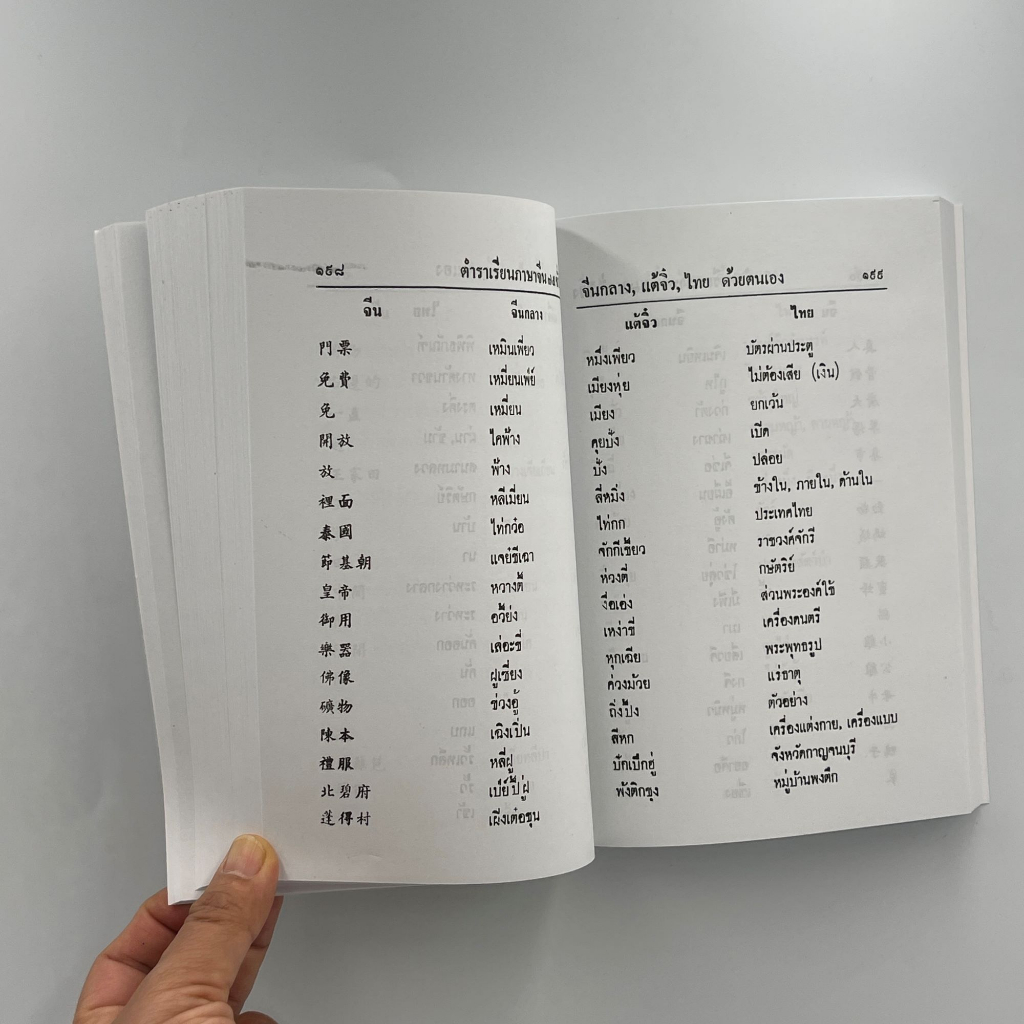 ๑๙๘ ตำราเรียนภาษาจีน
จีน จีนกลาง
門票 เหมินเพี่ยว
免費 เหมี่ยนเฟ่ย์
免 เหมี่ยน
開放 ไคฟ่าง
放 ฟ่าง
裡面 หลีเมี่ยน
泰國 ไท่กว๋อ
節基朝 แจย๋ชีเฉา
皇帝 หวางตี้
御用 อวี้ย่ง
樂器 เล่อะชี่
佛像 ฝูเซี่ยง
礦物 ข่วงอู้
陳本 เฉิงเปิ่น
禮服 หลี่ฝู
北碧府 เป่ย์ปี้ฝู่
蓬得村 เผิงเต๋อชุน
จีนกลาง, แต้จิ๋ว, ไทย ด้วยตนเอง ๑๙๙
แต้จิ๋ว ไทย
หมึ่งเพียว บัตรผ่านประตู
เมียงหุ่ย ไม่ต้องเสีย (เงิน)
เมียง ยกเว้น
คุยบั้ง เปิด
บั้ง ปล่อย
ลี่หมิ่ง ข้างใน, ภายใน, ด้านใน
ไท่กก ประเทศไทย
จักกีเชียว ราชวงศ์จักรี
ห่วงตี่ กษัตริย์
งื่อเอ่ง ส่วนพระองค์ใช้
เหง่าขี่ เครื่องดนตรี
หุกเฉีย พระพุทธรูป
ค่วงม้วย แร่ธาตุ
ถิ่งปึ้ง ตัวอย่าง
ลี่หก เครื่องแต่งกาย, เครื่องแบบ
ปักเปิกฮู่ จังหวัดกาญจนบุรี
พ้งติกชุง หมู่บ้านพงตึก